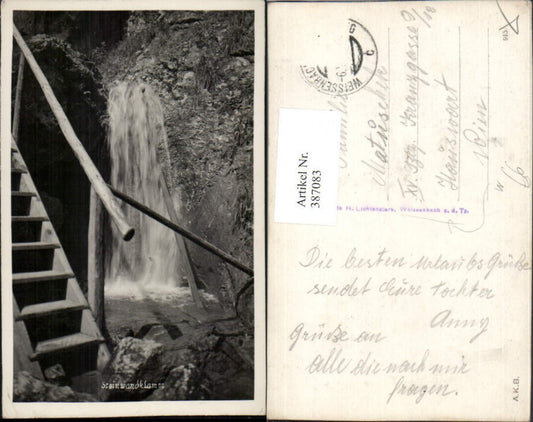 Steinwandklamm
Artikel Nr.
387083
WEISSENBACH
Familie
Matuschek
Hauswart
Wien
Weissenbach a. d. Tr.
Die besten Urlaubs Grüße
sendet Eure Tochter
Anny
Grüße an
alle die nach mir
fragen.
A.K.B.